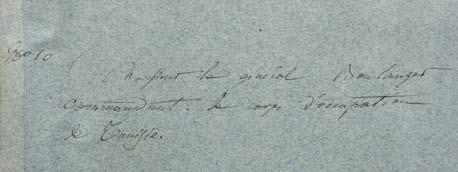 Monsieur le général Boulanger
Commandant le corps d'occupation
de Tunisie.